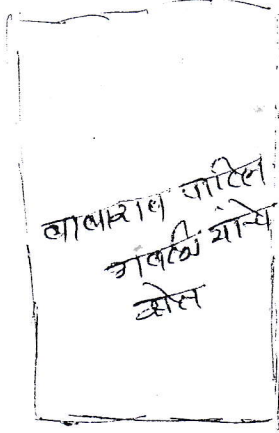 बाबाराव पाटिल
गवळी यांचे
शेत